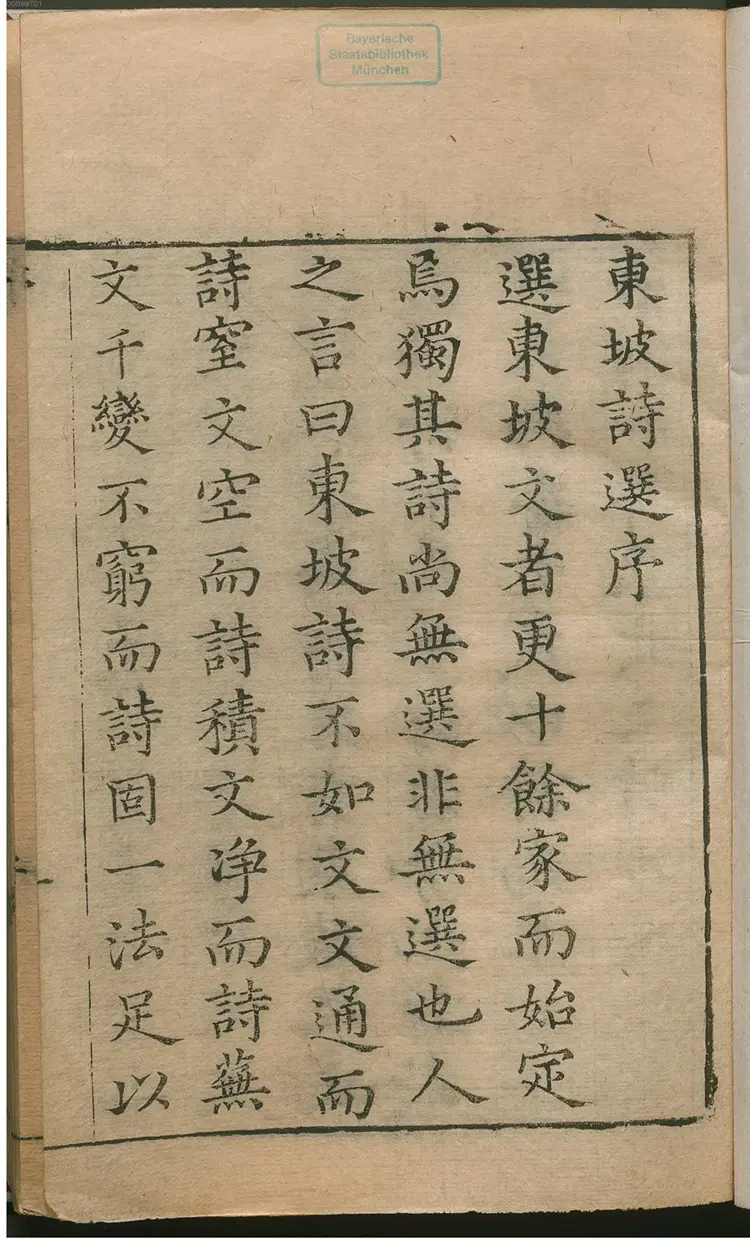 00099701
Bayerische
Staatsbibliothek
München
東坡詩選序
選東坡文者更十餘家而始定
焉獨其詩尚無選非無選也人
之言曰東坡詩不如文文通而
詩窒文空而詩積文净而詩蕪
文千變不窮而詩固一法足以